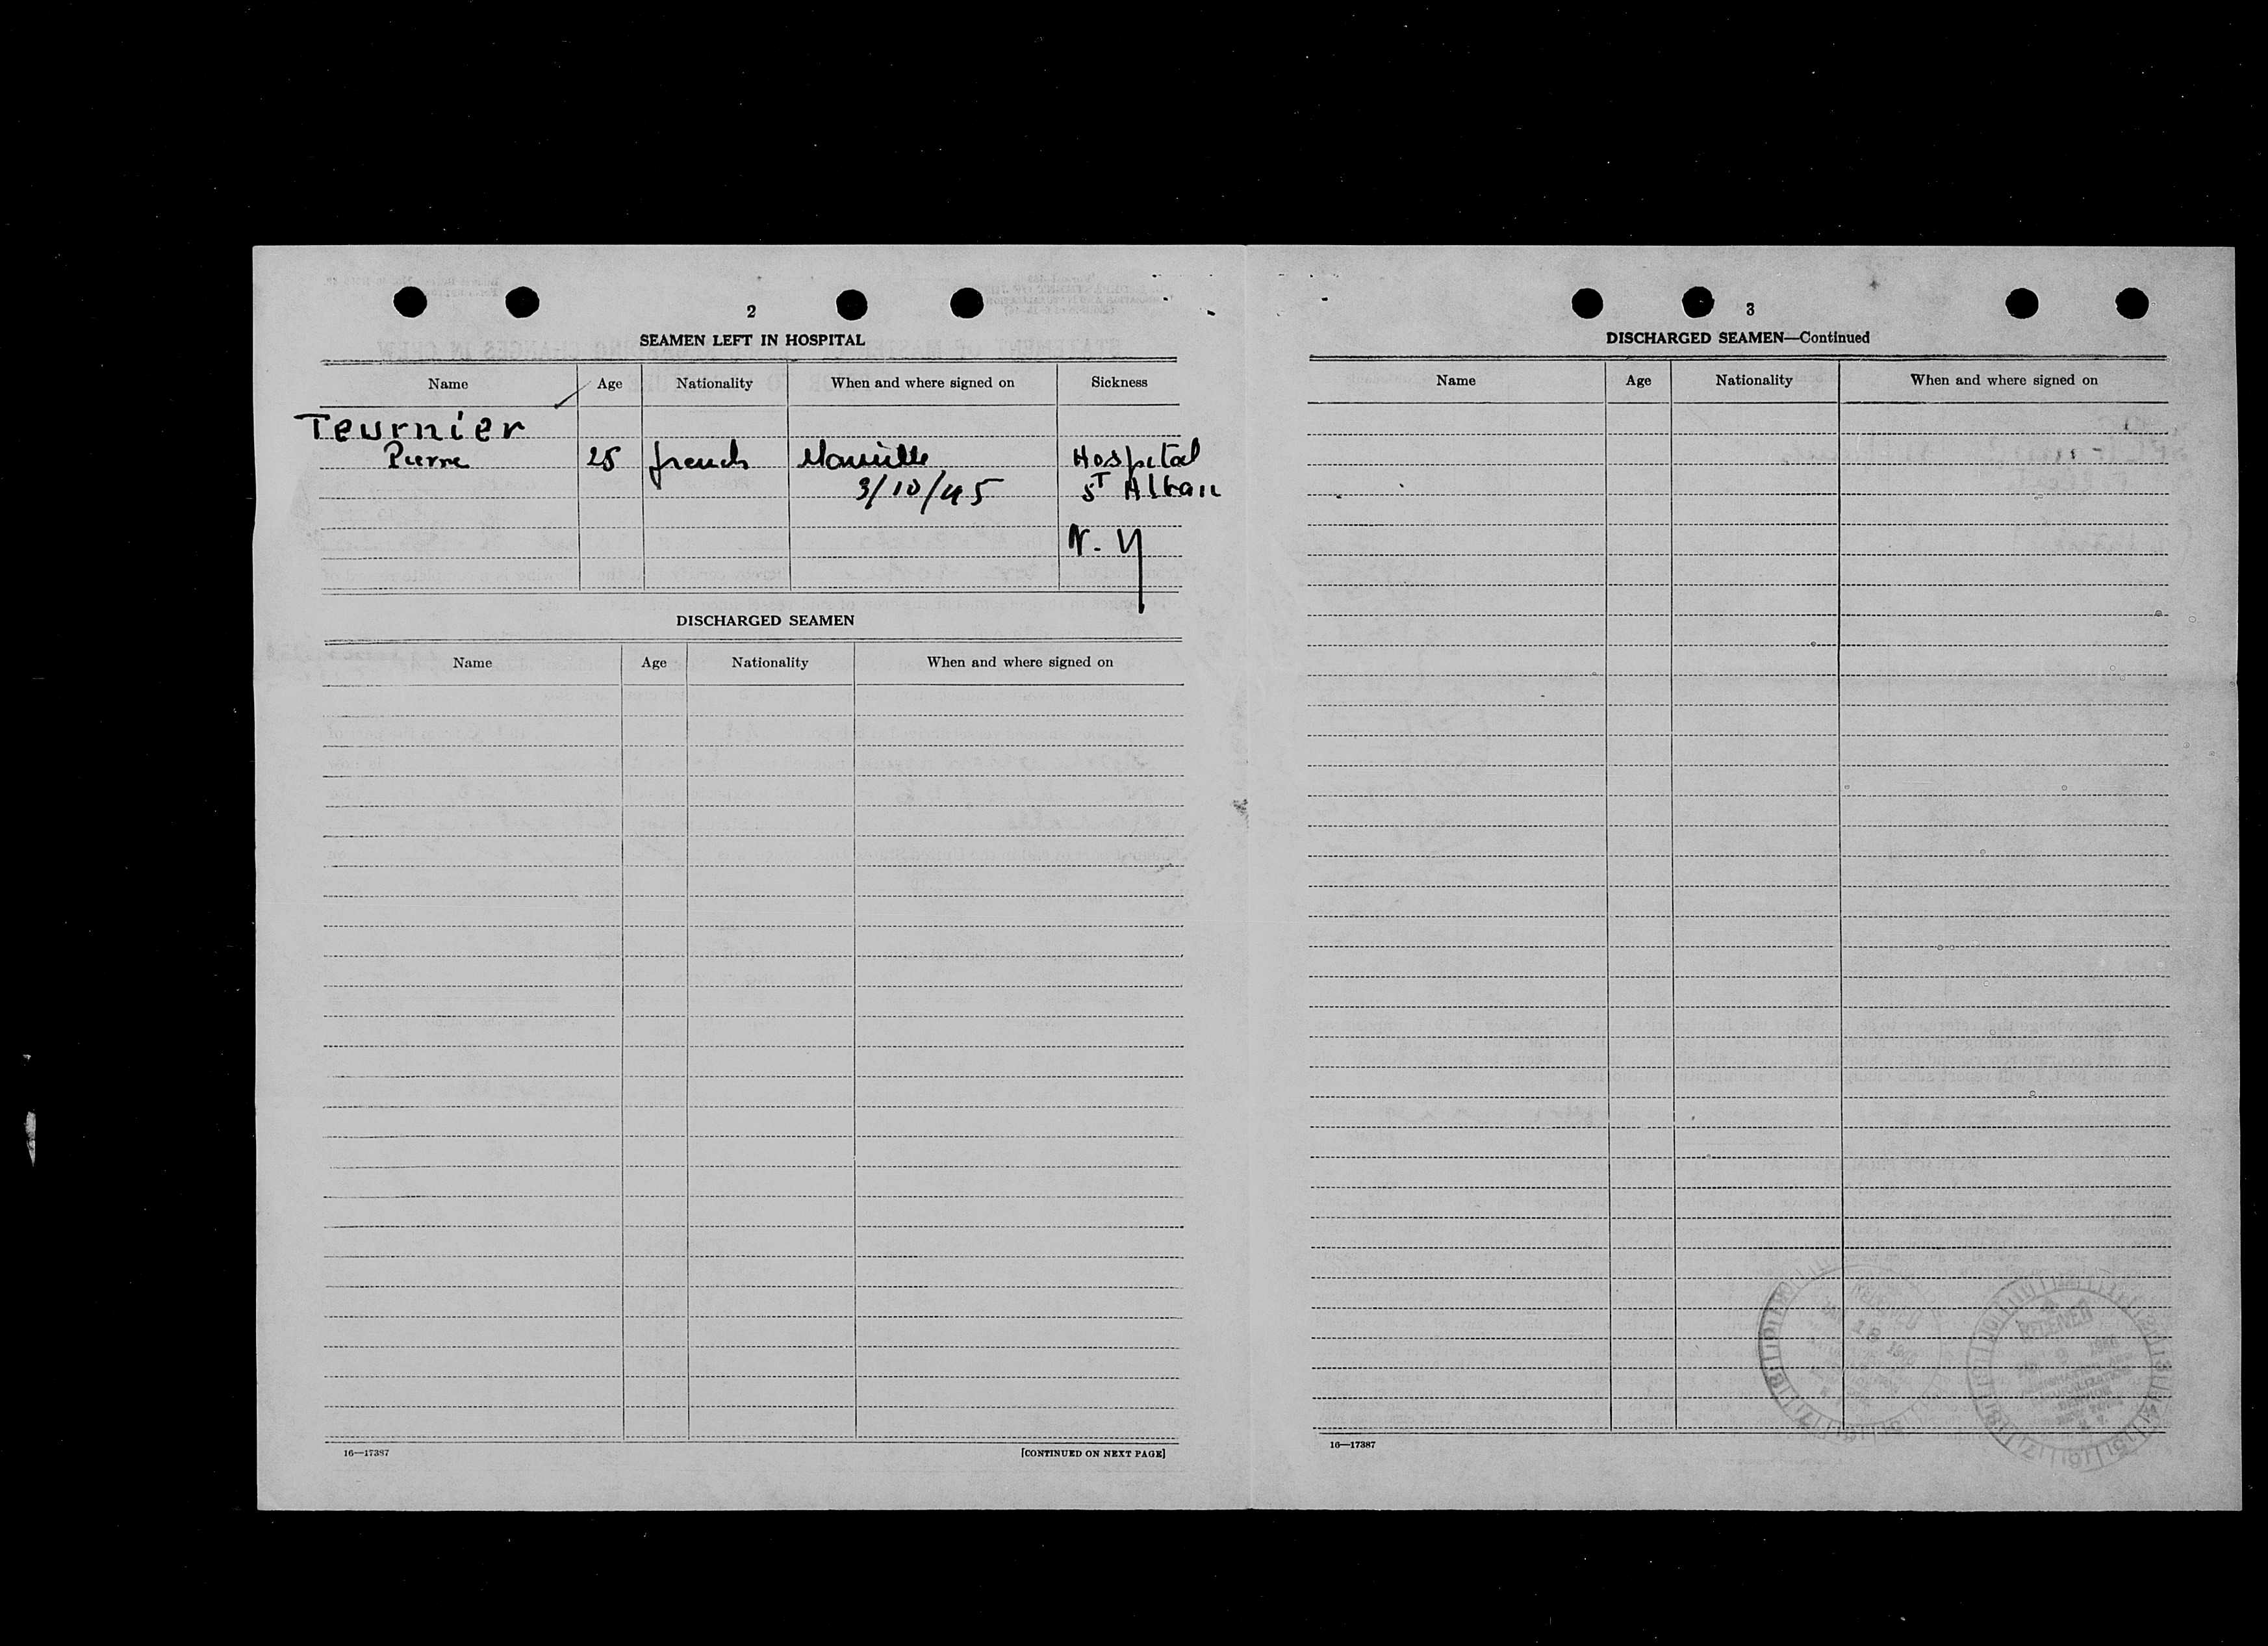 2
SEAMEN LEFT IN HOSPITAL
Name Age Nationality When and where signed on Sickness
Teurnier
Pierre 25 french Marseille Hospital
3/10/45 ST Alban
N. Y
DISCHARGED SEAMEN
Name Age Nationality When and where signed on
16—17387 [CONTINUED ON NEXT PAGE]
3
DISCHARGED SEAMEN—Continued
Name Age Nationality When and where signed on
RECEIVED
18 1946
RECEIVED
1946
16—17387